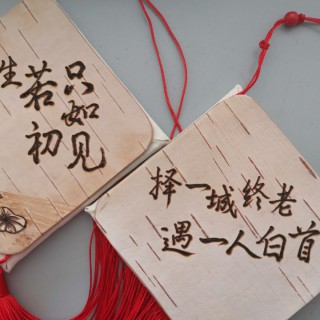 生若只如
初见
择一城终老
遇一人白首